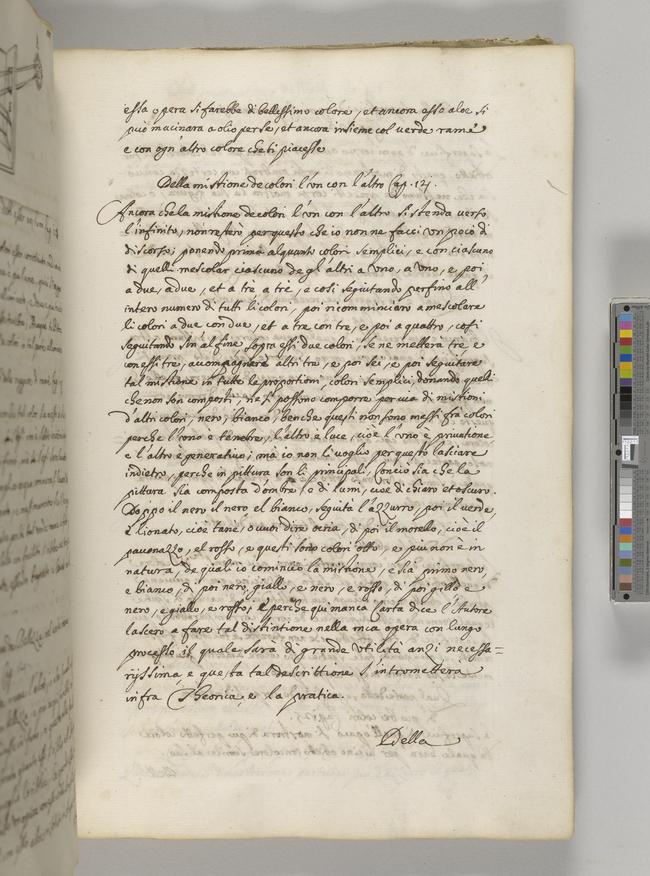 essa opera si farebbe di bellissimo colore, et ancora esso aloe si
può macinara a olio per se, et ancora insieme col verde rame
e con ogn'altro colore che ti piacesse
Della mistione de colori l'un con l'altro Cap. 121.
Ancora che la mistione de colori l'un con l'altro si stenda verso
l'infinito, non resterò per questo che io non ne facci un poco di
discorso; ponendo prima alquanti colori semplici, e con ciascuno
di quelli mescolar ciascuno degl'altri a uno, a uno, e poi
a due, a due, et a tre a tre, e così seguitando perfino all'
intero numero di tutti li colori, poi ricominciaro a mescolare
li colori a due con due, et a tre con tre, e poi a quattro, così
seguitando sin'al fine, sopra essi due colori se ne metterà tre e
con essi tre, accompagnerè altri tre, e poi sei, e poi seguitare
tal mistione in tutte le proportioni, colori semplici, domando quelli
che non son composti, ne si possono comporre per via di mistioni
d'altri colori, nero, bianco, benche questi non sono messi frà colori
perche l'uno e tenebre, l'altro e luce, cioè l'uno e privatione
e l'altro e generativo; ma io non li voglio per questo lasciare
indietro, perche in pittura son li principali, conciosia che la
pittura sia composta d'ombre, e di lumi, cioè di chiaro et oscuro.
Doppo il nero il nero el bianco, seguita l'azzurro, poi il verde
e lionato, cioè tanè, o vuoi dire ocria, di poi il morello, cioè il
pavonazzo, el rosso, e questi sono colori otto, e più non è in
natura, de quali io cominciò la mistione, e sia primo nero,
e bianco, di poi nero, giallo, e nero, e rosso, di poi gillo e
nero, e giallo, e rosso, e perche qui manca Carta dice l'Autore
lascerò a fare tal distintione nella mia opera con lungo
processo il quale sarà di grande utilità anzi necessa=
rijssima, e questa tal descrittione s'intrometterà
infra Theorica, e la pratica.
Della